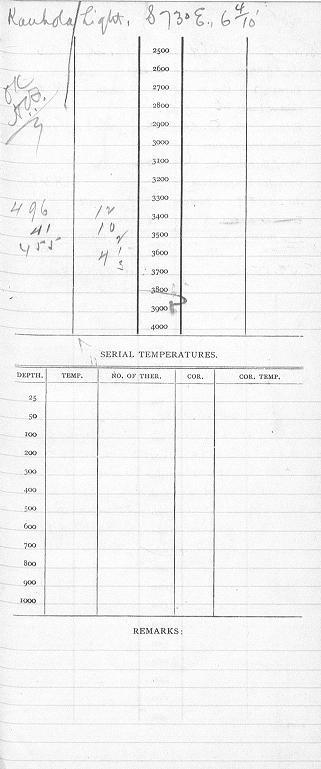 Kauhola Light, S 73° E., 6 4/10'
2500
2600
OK
2700
2800
2900
3000
3100
3200
496 12 3300
41 10 3400
455 2 3500
4 1 3600
3 3700
3800
3900
4000
SERIAL TEMPERATURES.
DEPTH. TEMP. NO. OF THER. COR. COR. TEMP.
25
50
100
200
300
400
500
600
700
800
900
1000
REMARKS: